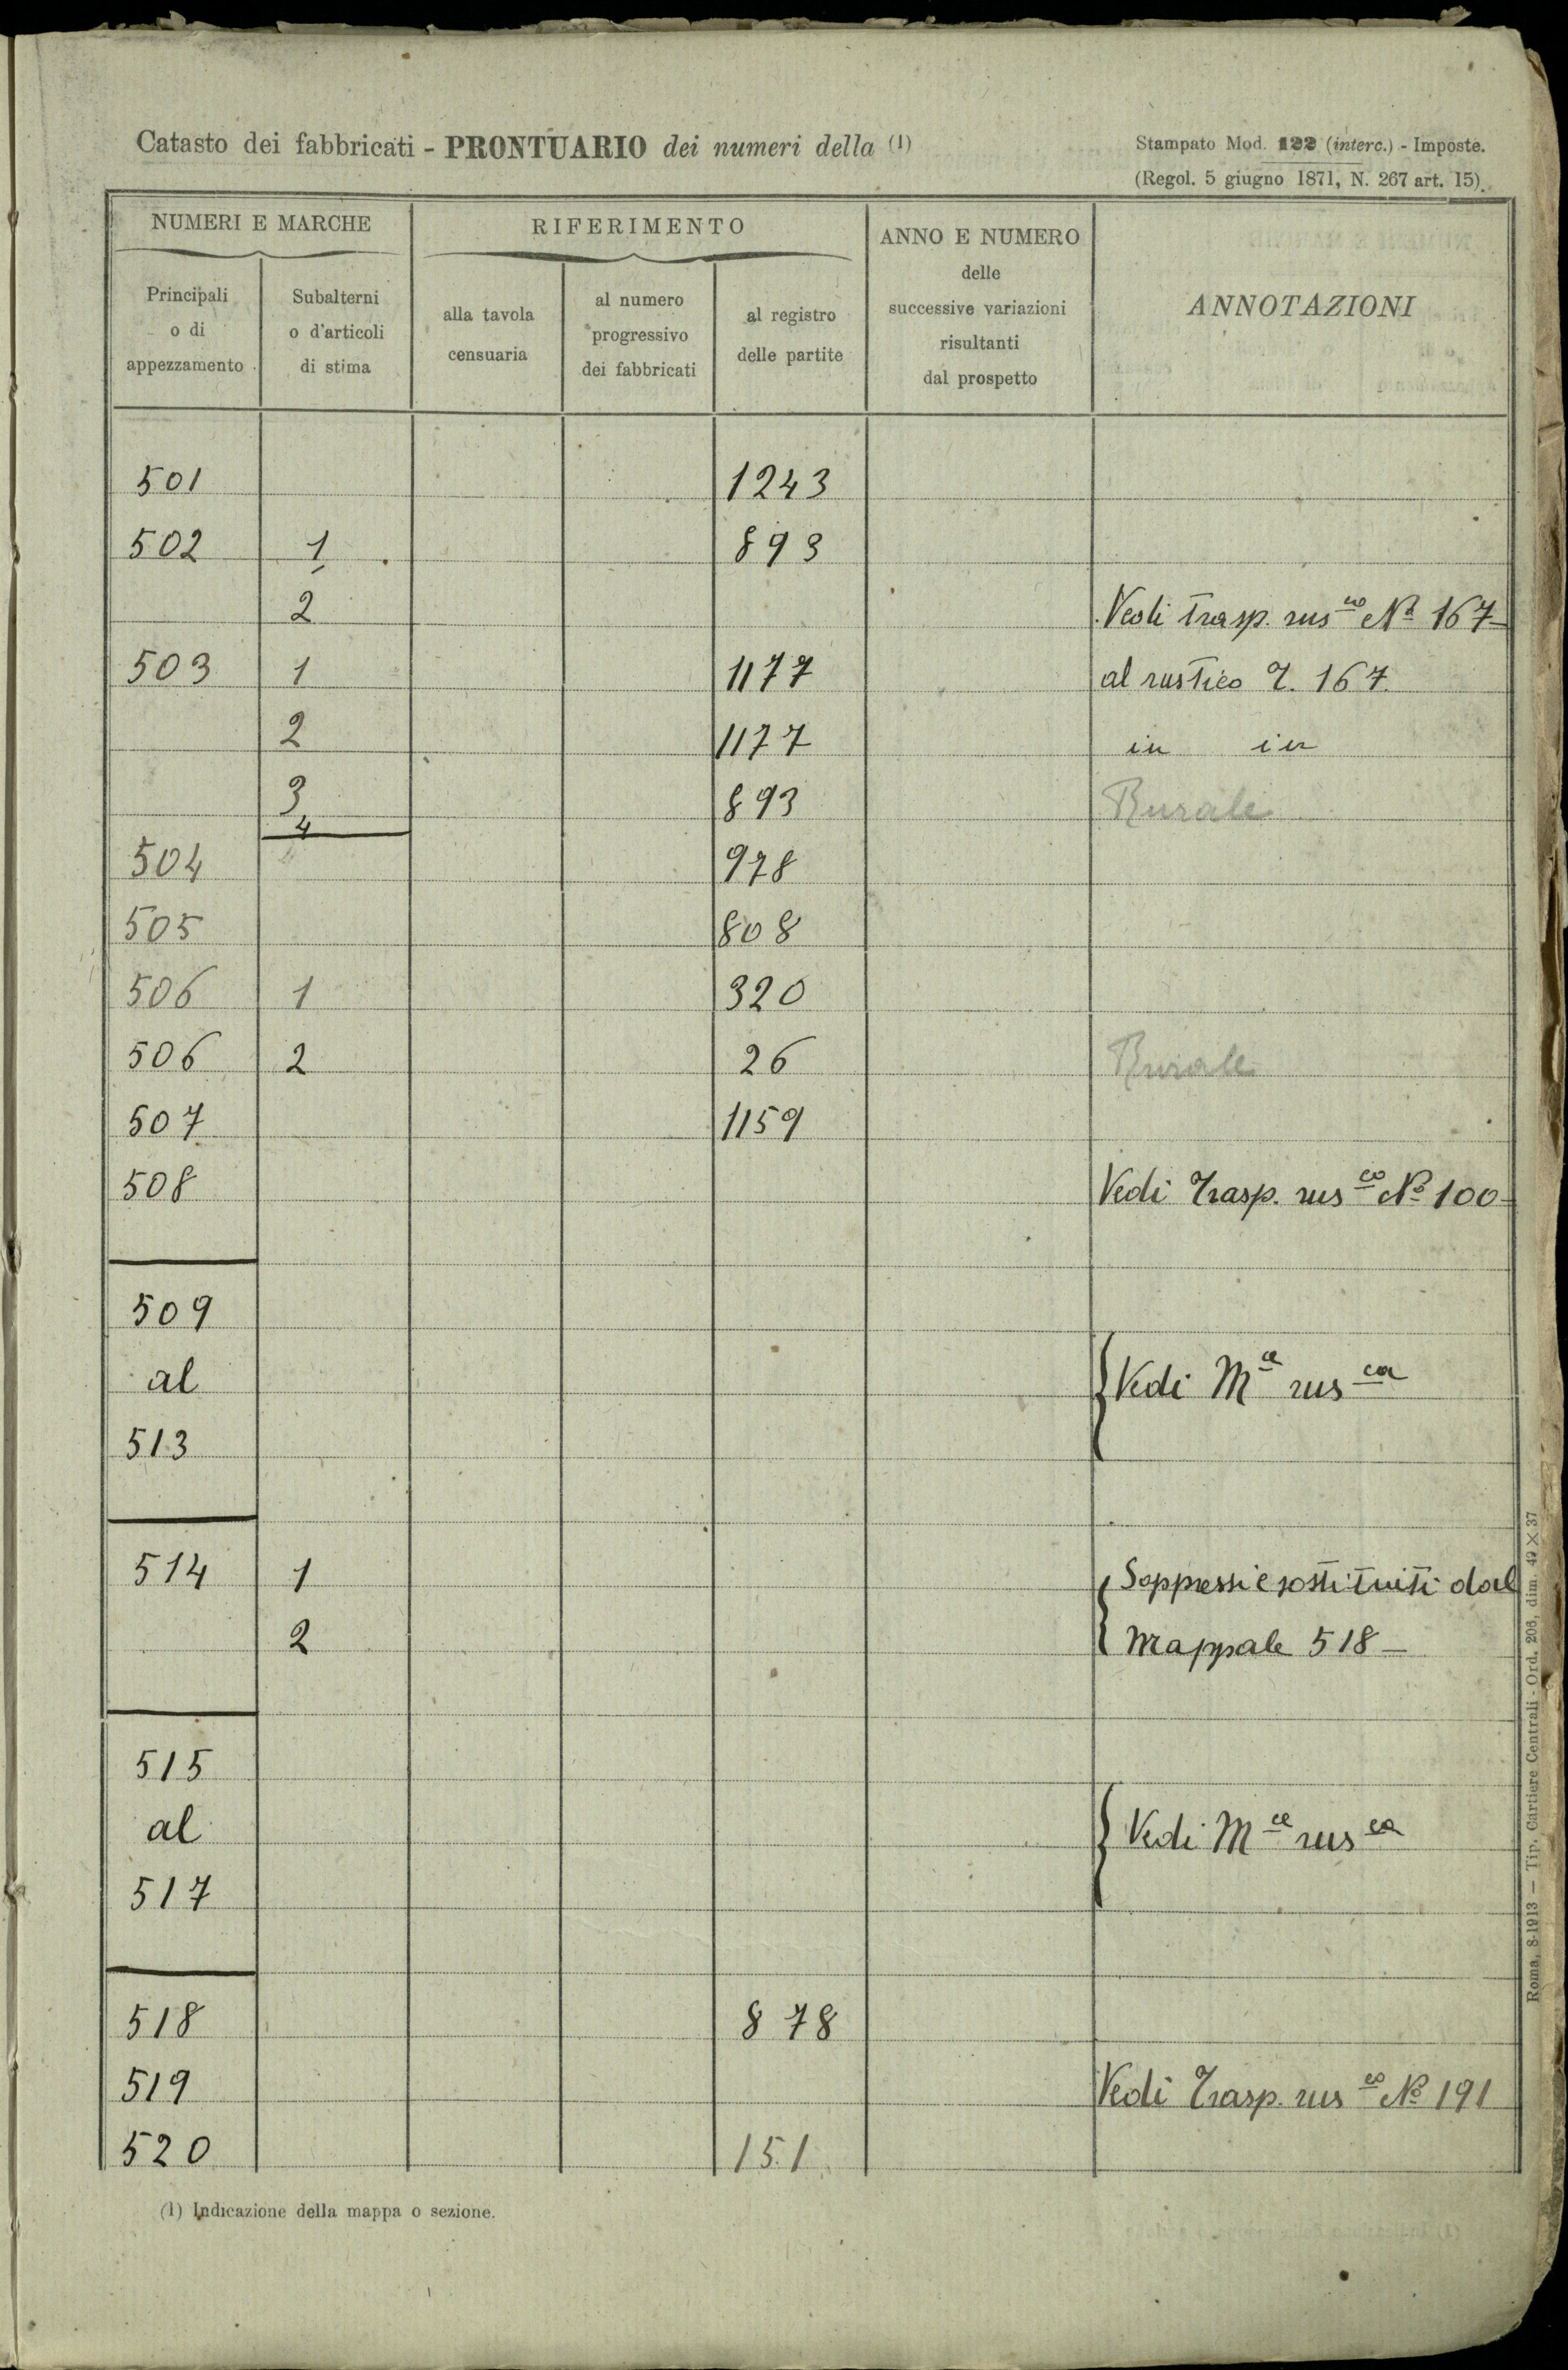 Catasto dei fabbricati - PRONTUARIO dei numeri della (1)
Stampato Mod. 122 (interc.) - Imposte.
(Regol. 5 giugno 1871, N. 267 art. 15).
NUMERI E MARCHE
RIFERIMENTO
ANNO E NUMERO
delle
successive variazioni
risultanti
dal prospetto
ANNOTAZIONI
Principali
o di
appezzamento
Subalterni
o d'articoli
di stima
alla tavola
censuaria
al numero
progressivo
dei fabbricati
al registro
delle partite
501 1243
502 1 893
2 Vedi trasp. rus co No 167
503 1 1177 al rustico T. 167
2 1177 in in
3 893 Rurale
4
504 978
505 808
506 1 320
506 2 26 Rurale
507 1159
508 Vedi Trasp. rus co No 100
509
al Vedi M ce rus ca
513
514 1 Soppressi e sostituiti dal
2 Mappale 518 —
515
al Vedi M ce rus ca
517
518 878
519 Vedi Trasp. rus co No 191
520 151
(1) Indicazione della mappa o sezione.
Roma, 8-1913 — Tip. Cartiere Centrali - Ord. 206, dim. 49 × 37